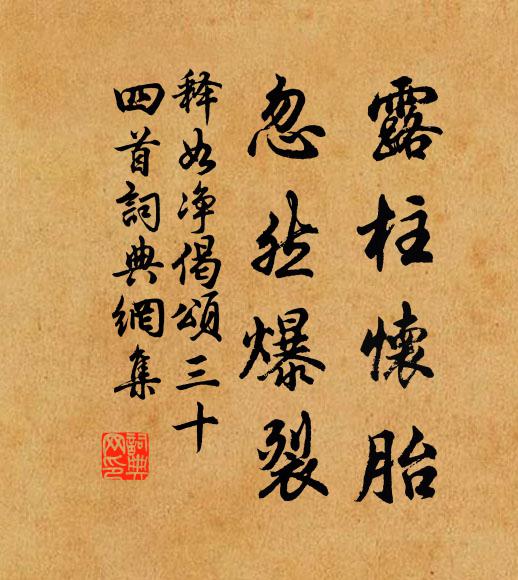 露柱懷胎
忽然爆裂
释如净偈頌三十
四首詞典網集
詞典
网印